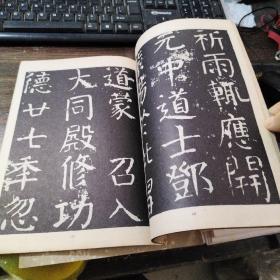 祈雨輒應開
元中道士鄧
於此習
道蒙 召入
大同殿修功
德廿七秊忽